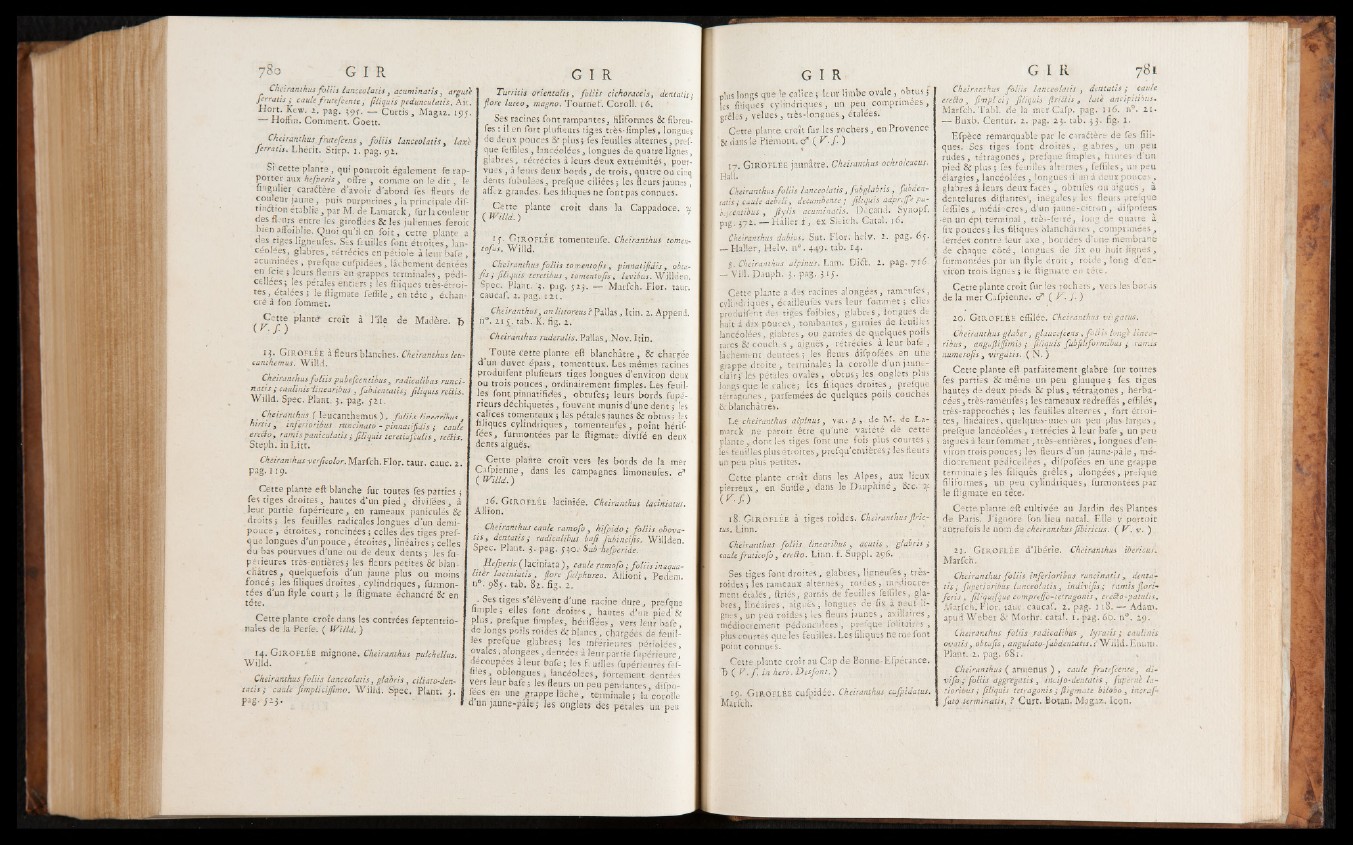 780 G I R
Cheiranthus foliis lanceolatis, acuminatis, argutè
serratis; caule frutescente, siliquis pedunculatis. Ait.
Hort. Kew. 2. pag. 391. — Curtis, Magaz. 195.
— Hoffm. Comment. Goett.
Cheiranthus frutescens, foliis lanceolatis, laxè
serratis. Lhérit. Stirp. 1. pag. 92.
Si cette plante, qui pourroit également se rap-
porter aux hesperis, offre, comme on le dit, le
singulier caractère d'avoir d'abord ses fleurs de
couleur jaune, puis purpurines, la principale dis-
tinction établie, par M. de Lamarck, sur la couleur
des fleurs entre les giroflées & les juliennes seroit
bien affoiblie. Quoi qu'il en soit, cette plante a
des tiges ligneuses. Ses feuilles sont étroites, lan-
céolées, glabres, rétrécies en pétiole à leur base,
acuminées, presque cuspidées, lâchement dentées
en scie; leurs fleurs en grappes terminales, pédi-
cellées; les pétales entiers; les siliques très-étroi-
tes, étalées; le stigmate sessile, en tête, échan-
cré à son sommet.
Cette plante croît à l'île de Madère. ♄
(V. s.)
13. GIROFLÉE à fleurs blanches. Cheiranthus leu-
canthemus. Willd.
Cheiranthus foliis pubescentibus, radicalibus runci-
natis; caulinis linearibus, subdentatis; siliquis rectis.
Willd. Spec. Plant. 3. pag. 521.
Cheiranthus (leucanthemus), foliis linearibus,
hirtis, inferioribus runcinato-pinnatifidis; caule
erecto, ramis paniculatis; siliquis teretiusculis, rectis.
Steph. in Litt.
Cheiranthus versicolor. Marsch. Flor. taur. cauc. 2.
pag. 119.
Cette plante est blanche sur toutes ses parties;
ses tiges droites, hautes d'un pied, divisées, à
leur partie supérieure, en rameaux paniculés &
droits; les feuilles radicales longues d'un demi-
pouce, étroites, roncinées; celles des tiges pres-
que longues d'un pouce, étroites, linéaires; celles
du bas pourvues d'une ou de deux dents; les su-
périeures très-entières; les fleurs petites & blan-
châtres, quelquefois d'un jaune plus ou moins
foncé; les siliques droites, cylindriques, surmon-
tées d'un style court; le stigmate échancré & en
tête.
Cette plante croît dans les contrées septentrio-
nales de la Perse. (Willd.)
14. GIROFLÉE mignone. Cheiranthus pulchellus.
Willd.
Cheiranthus foliis lanceolatis, glabris, ciliato-den-
tatis; caule simplicissimo. Willd. Spec. Plant. 3.
pag. 523.
G I R
Turritis orientalis, foliis cichoraceis, dentatis;
flore luteo, magno. Tournef. Coroll. 16.
Ses racines sont rampantes, filiformes & fibreu-
ses: il en sort plusieurs tiges très-simples, longues
de deux pouces & plus; ses feuilles alternes, pres-
que sessiles, lancéolées, longues de quatre lignes,
glabres, rétrécies à leurs deux extrémités, pour-
vues, à leurs deux bords, de trois, quatre ou cinq
dents subulées, presque ciliées; les fleurs jaunes,
assez grandes. Les siliques ne sont pas connues.
Cette plante croît dans la Cappadoce. ♃
(Willd.)
15. GIROFLÉE tomenteuse. Cheiranthus tomen-
tosus. Willd.
Cheiranthus foliis tomentosis, pinnatifidis, obtu-
sis; siliquis teretibus, tomentosis, levibus. Willden.
Spec. Plant. 3. pag. 523. — Marsch. Flor. taur.
caucas. 2. pag. 121.
Cheiranthus, an littoreus? Pallas, Itin. 2. Append.
n°. 215. tab. K. fig. 2.
Cheiranthus ruderalis. Pallas, Nov. Itin.
Toute cette plante est blanchâtre, & chargée
d'un duvet épais, tomenteux. Les mêmes racines
produisent plusieurs tiges longues d'environ deux
ou trois pouces, ordinairement simples. Les feuil-
les sont pinnatifides, obtuses; leurs bords supé-
rieurs déchiquetés, souvent munis d'une dent; les
calices tomenteux; les pétales jaunes & obtus; les
siliques cylindriques, tomenteuses, point héris-
sées, surmontées par le stigmate divisé en deux
dents aiguës.
Cette plante croît vers les bords de la mer
Caspienne, dans les campagnes limoneuses. ♂
(Willd.)
16. GIROFLÉE laciniée. Cheiranthus laciniatus.
Allion.
Cheiranthus caule ramoso, hispido; foliis obova-
tis, dentatis; radicalibus basi subincisis. Willden.
Spec. Plant. 3. pag. 520. Sub hesperide.
Hesperis (laciniata), caule ramoso; foliis inæqua-
liter laciniatis, flore sulphureo. Allioni, Pedem.
n°. 985. tab. 82. fig. 2.
Ses tiges s'élèvent d'une racine dure, presque
simple; elles sont droites, hautes d'un pied &
plus, presque simples, hérissées, vers leur base,
de longs poils roides & blancs, chargées de feuil-
les presque glabres; les inférieures pétiolées,
ovales, alongées, dentées à leur partie supérieure,
découpées à leur base; les feuilles supérieures ses-
siles, oblongues, lancéolées, fortement dentées
vers leur base; les fleurs un peu pendantes, dispo-
sées en une grappe lâche, terminale; la corolle
d'un jaune-pâle; les onglets des pétales un peu
G I R
plus longs que le calice; leur limbe ovale, obtus;
les siliques cylindriques, un peu comprimées,
grêles, velues, très-longues, étalées.
Cette plante croît sur les rochers, en Provence
& dans le Piémont. ♂ (V. s.)
17. GIROFLÉE jaunâtre. Cheiranthus ochroleucus.
Hall.
Cheiranthus foliis lanceolatis, subglabris, subden-
tatis; caule debili, decumbente; siliquis adpressè pu-
bescentibus, stylis acuminatis. Decand. Synops.
pag. 372. — Haller f, ex Sleich. Catal. 16.
Cheiranthus dubius. Sut. Flor. helv. 2. pag. 65.
— Haller, Helv. n°. 449. tab. 14.
β. Cheiranthus alpinus. Lam. Dict. 2. pag. 716.
— Vill. Dauph. 3. pag. 315.
Cette plante a des racines alongées, rameuses,
cylindriques, écailleuses vers leur sommet; elles
produisent des tiges foibles, glabres, longues de
huit à dix pouces, tombantes, garnies de feuilles
lancéolées, glabres, ou garnies de quelques poils
rares & couchés, aiguës, rétrécies à leur base,
lâchement dentées; les fleurs disposées en une
grappe droite, terminale; la corolle d'un jaune-
clair; les pétales ovales, obtus; les onglets plus
longs que le calice; les siliques droites, presque
tétragones, parsemées de quelques poils couchés
& blanchâtres.
Le cheiranthus alpinus, var. β, de M. de La-
marck ne paroît être qu'une variété de cette
plante, dont les tiges sont une fois plus courtes;
les feuilles plus étroites, presqu'entières; les fleurs
un peu plus petites.
Cette plante croît dans les Alpes, aux lieux
pierreux, en Suisse, dans le Dauphiné, &c. ♃
(V. s.)
18. GIROFLÉE à tiges roides. Cheiranthus stric-
tus. Linn.
Cheiranthus foliis linearibus, acutis, glabris;
caule fruticoso, erecto. Linn. f. Suppl. 296.
Ses tiges sont droites, glabres, ligneuses, très-
roides; les rameaux alternes, roides, médiocre-
ment étalés, striés, garnis de feuilles sessiles, gla-
bres, linéaires, aiguës, longues de six à neuf li-
gnes, un peu roides; les fleurs jaunes, axillaires,
médiocrement pédonculées, presque solitaires,
plus courtes que les feuilles. Les siliques ne me sont
point connues.
Cette plante croît au Cap de Bonne-Espérance.
♄ (V. s. in herb. Desfont.)
19. GIROFLÉE cuspidée. Cheiranthus cuspidatus.
Marsch.
G I R 781
Cheiranthus foliis lanceolatis, dentatis; caule
erecto, simplici; siliquis strictis, latè ancipitibus.
Marsch. Tabl. de la mer Casp. pag. 116. n°. 21.
— Buxb. Centur. 2. pag. 23. tab. 33. fig. 1.
Espèce remarquable par le caractère de ses sili-
ques. Ses tiges sont droites, glabres, un peu
rudes, tétragones, presque simples, hautes d'un
pied & plus; ses feuilles alternes, sessiles, un peu
élargies, lancéolées, longues d'un à deux pouces,
glabres à leurs deux faces, obtuses ou aiguës, à
dentelures distantes, inégales; les fleurs presque
sessiles, médiocres, d'un jaune-citron, disposées
en un épi terminal, très-serré, long de quatre à
six pouces; les siliques blanchâtres, comprimées,
serrées contre leur axe, bordées d'une membrane
de chaque côté, longues de six ou huit lignes,
surmontées par un style droit, roide, long d'en-
viron trois lignes; le stigmate en tête.
Cette plante croît sur les rochers, vers les bords
de la mer Caspienne. ♂ (V. s.)
20. GIROFLÉE effilée. Cheiranthus virgatus.
Cheiranthus glaber, glaucescens, foliis longè linea-
ribus, angustissimis; siliquis subfiliformibus; ramis
numerosis, virgatis. (N.)
Cette plante est parfaitement glabre sur toutes
ses parties & même un peu glauque; ses tiges
hautes de deux pieds & plus, tétragones, herba-
cées, très-rameuses; les rameaux redressés, effilés,
très-rapprochés; les feuilles alternes, fort étroi-
tes, linéaires, quelques-unes un peu plus larges,
presque lancéolées, rétrécies à leur base, un peu
aiguës à leur sommet, très-entières, longues d'en-
viron trois pouces; les fleurs d'un jaune-pâle, mé-
diocrement pédicellées, disposées en une grappe
terminale; les siliques grêles, alongées, presque
filiformes, un peu cylindriques, surmontées par
le stigmate en tête.
Cette plante est cultivée au Jardin des Plantes
de Paris. J'ignore son lieu natal. Elle y portoit
autrefois le nom de cheiranthus sibiricus. (V. v.)
21. GIROFLÉE d'Ibérie. Cheiranthus ibericus.
Marsch.
Cheiranthus foliis inferioribus runcinatis, denta-
tis; superioribus lanceolatis, indivisis; ramis flori-
feris, siliquisque compresso-tetragonis, erecto-patulis.
Marsch. Flor. taur. caucas. 2. pag. 118. — Adam.
apud Weber & Mothr. catal. 1. pag. 60. n°. 29.
Cheiranthus foliis radicalibus, lyratis; caulinis
ovatis, obtusis, angulato-subdentatis.? Willd. Enum.
Plant. 2. pag. 681.
Cheiranthus (armenus), caule frutescente, di-
viso; foliis aggregatis, inciso-dentatis, supernè la-
tioribus; siliquis tetragonis; stigmate bilobo, incras-
sato terminatis. ? Curt. Botan. Magaz. Icon.